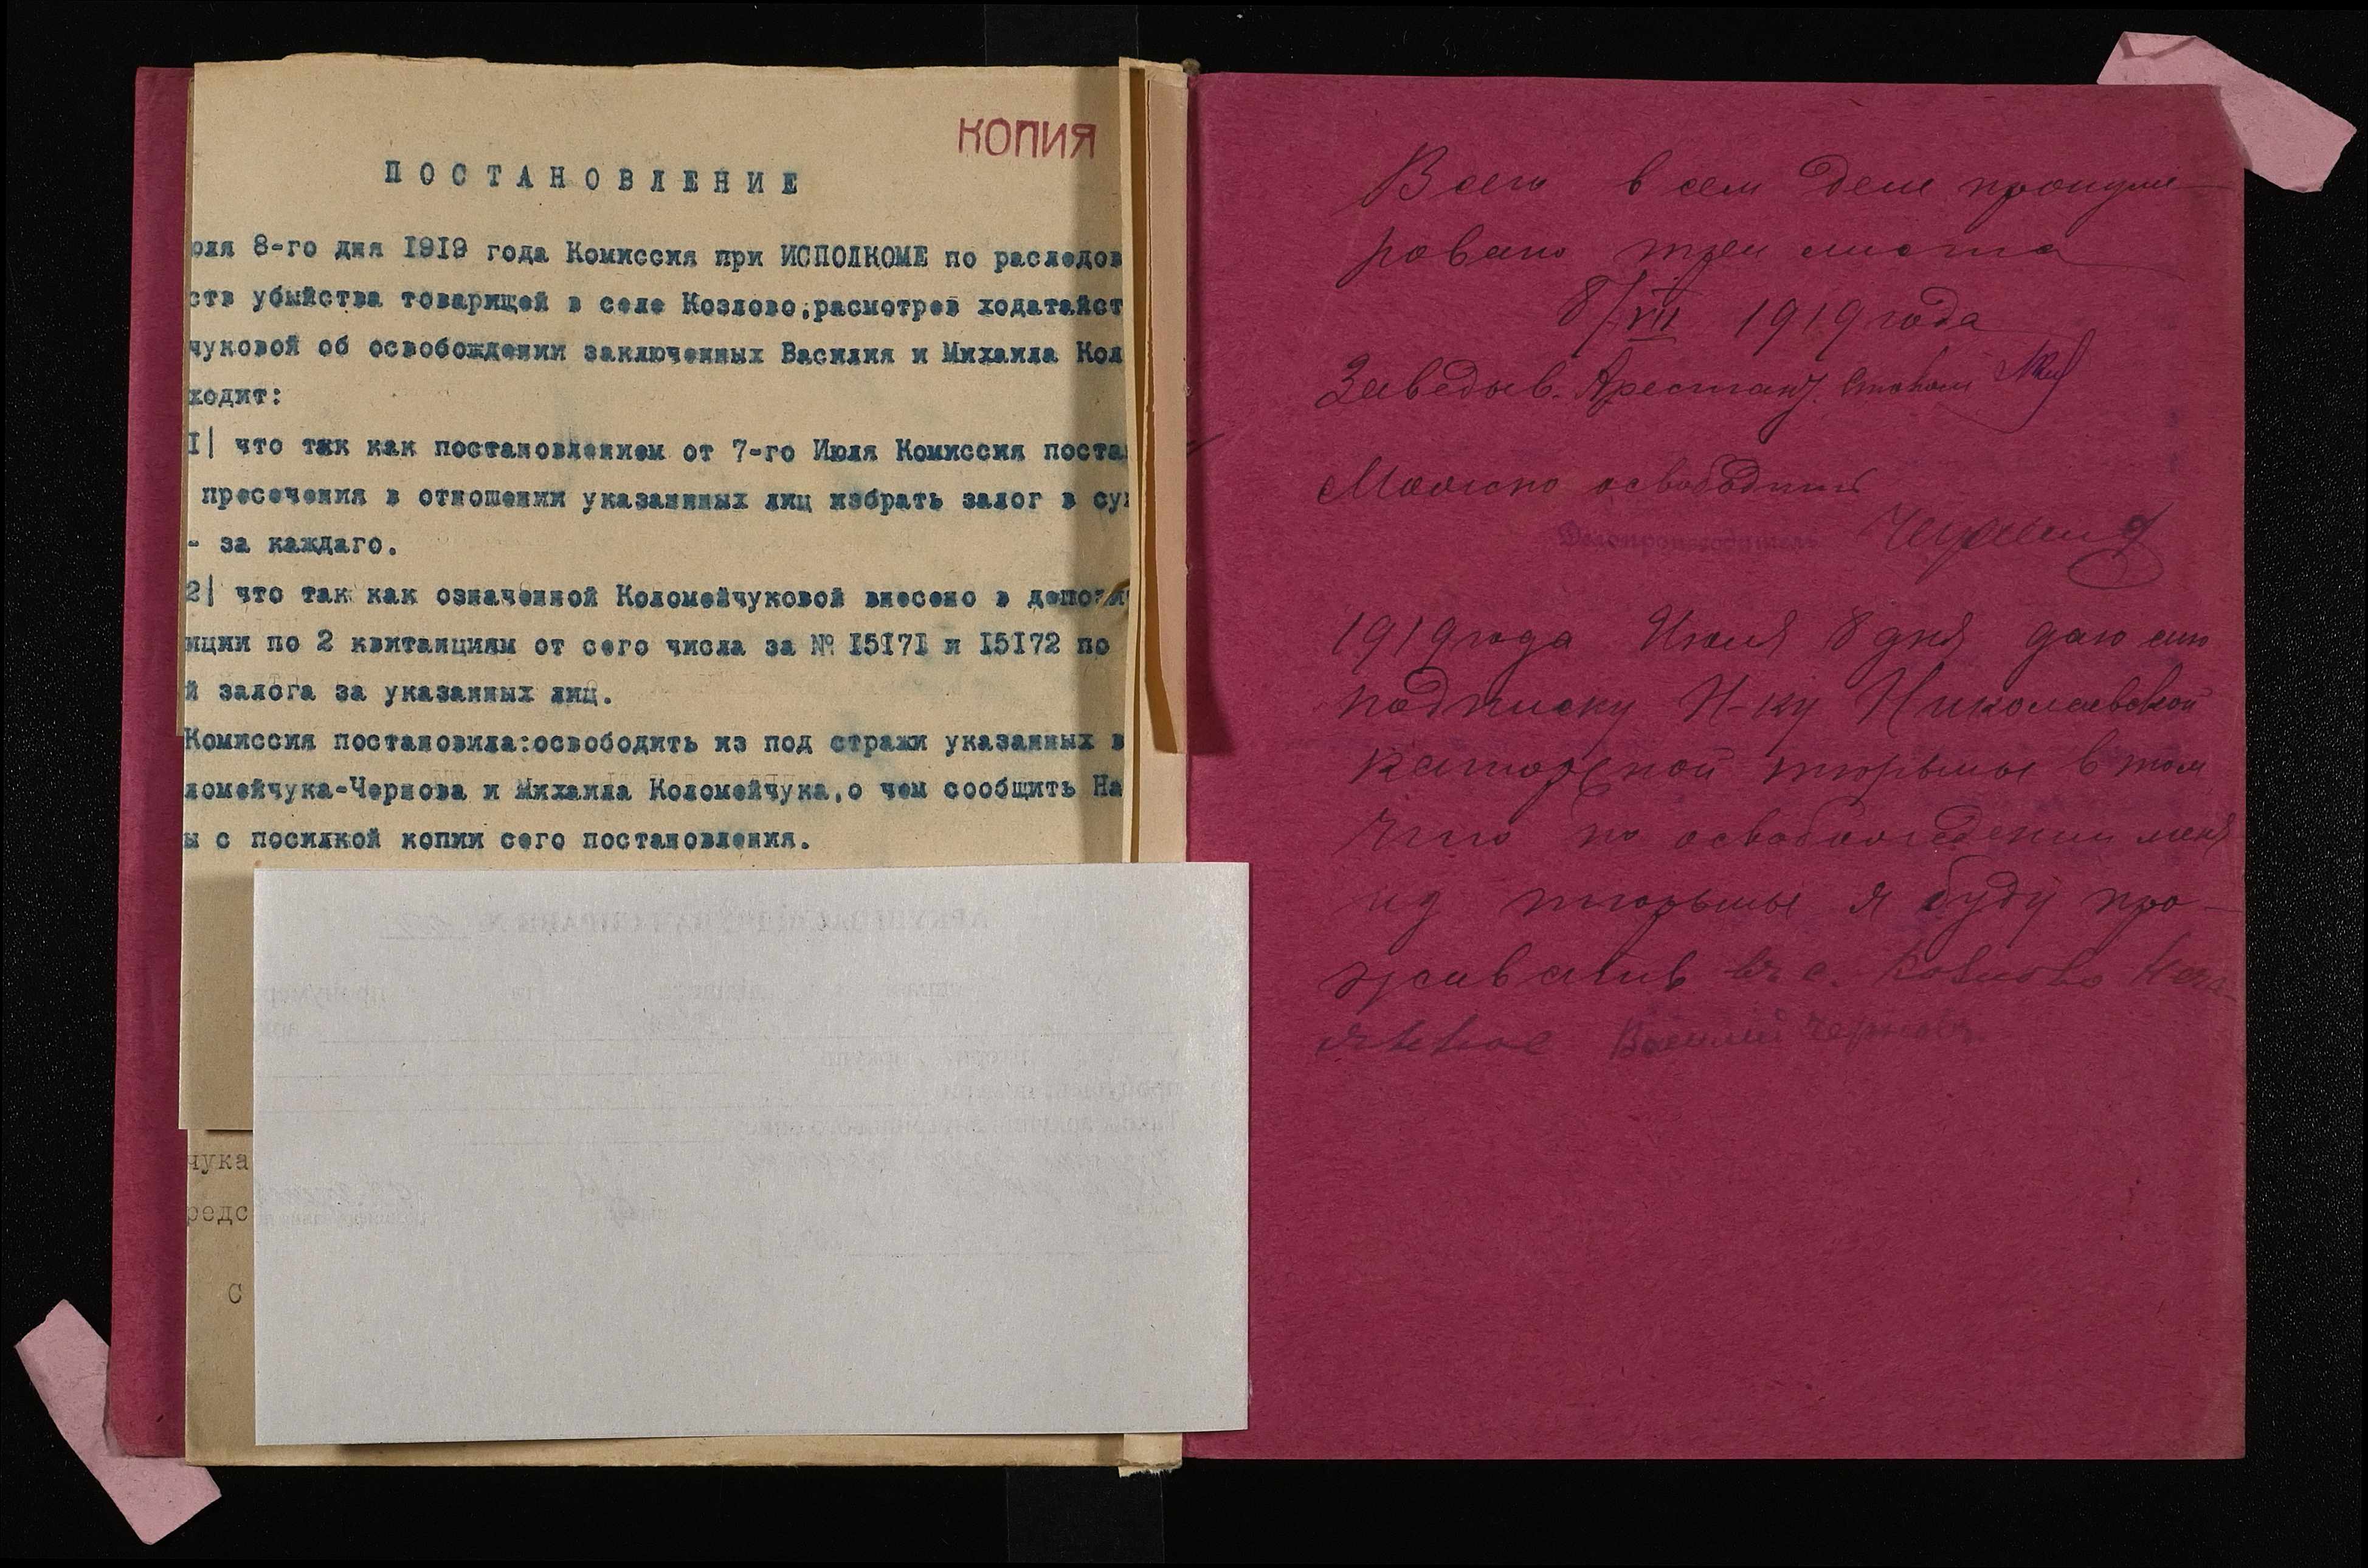 КОПИЯ
ПОСТАНОВЛЕНИЕ
юля 8-го дня 1919 года Комиссия при ИСПОЛКОМЕ по раследов
ств убыйства товарищей в селе Козлово,расмотрев ходатайст
чуковой об освобождении заключенных Василия и Михаила Кол
ходит:
1| что так как постановлением от 7-го Июля Комиссия поста
пресечения в отношении указанных лиц избрать залог в су
- за каждаго.
2| что так как означенной Коломейчуковой внесено в депози
иции по 2 квитанциям от сего числа за № 15171 и 15172 по
й залога за указанных лиц.
Комиссия постановила:освободить из под стражи указанных в
ломейчука-Чернова и Михаила Коломейчука,о чем сообщить На
ы с посилкой копии сего постановления.
чука
редс
с
Всего в сем деле пронуме-
ровано три листа
8/VII 1919 года
Заведыв. Арестант. столом
Можно освободить
Делопроизводитель
1919 года Июля 8 дня даю сию
подписку Н-ку Николаевской
каторжной тюрьмы в том
что по освобождении меня
из тюрьмы я буду про-
живать в с. Козлово
Василий Чернов